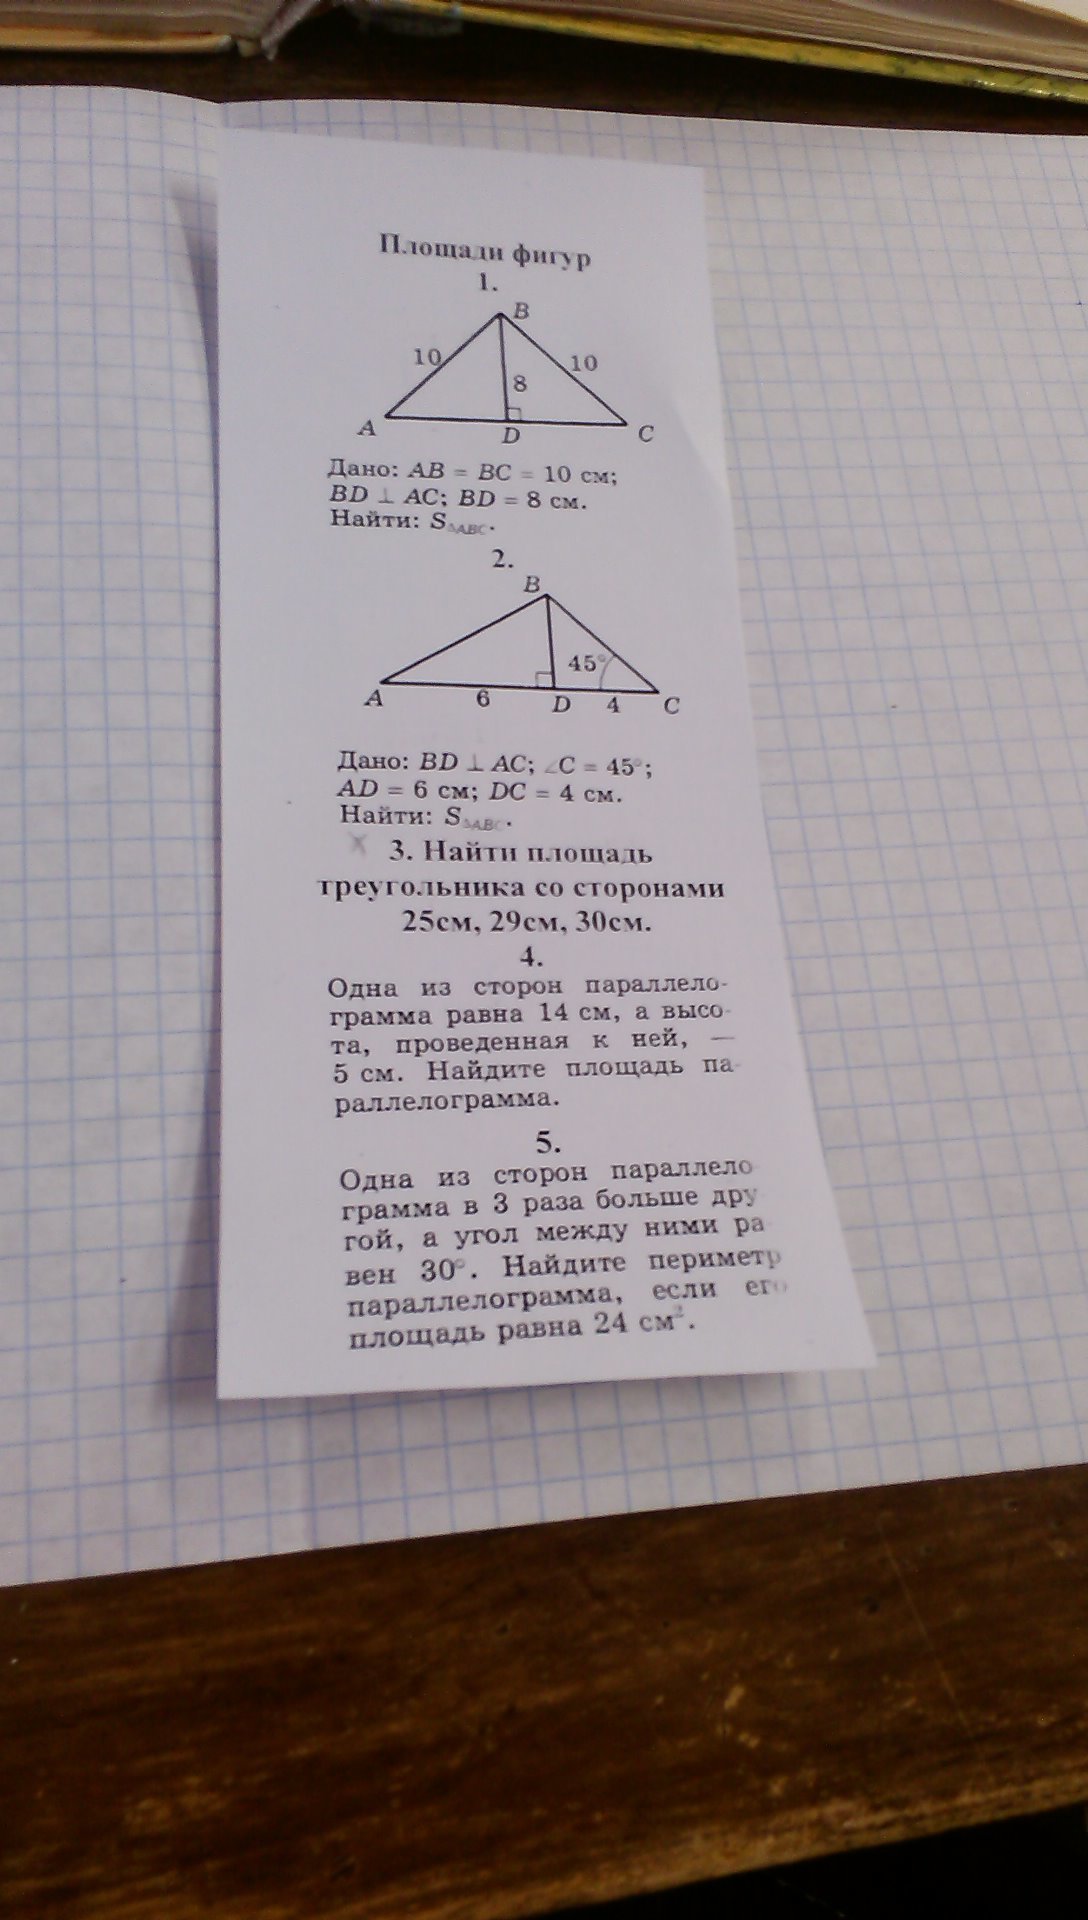 Площади фигур
1.
B
10
10
8
A
D
C
Дано: AB = BC = 10 см;
BD ⊥ AC; BD = 8 см.
Найти: S△ABC.
2.
B
45°
A
6
D
4
C
Дано: BD ⊥ AC; ∠C = 45°;
AD = 6 см; DC = 4 см.
Найти: S△ABC.
3. Найти площадь
треугольника со сторонами
25см, 29см, 30см.
4.
Одна из сторон параллело-
грамма равна 14 см, а высо-
та, проведенная к ней, —
5 см. Найдите площадь па-
раллелограмма.
5.
Одна из сторон параллело
грамма в 3 раза больше дру
гой, а угол между ними ра
вен 30°. Найдите периметр
параллелограмма, если его
площадь равна 24 см².